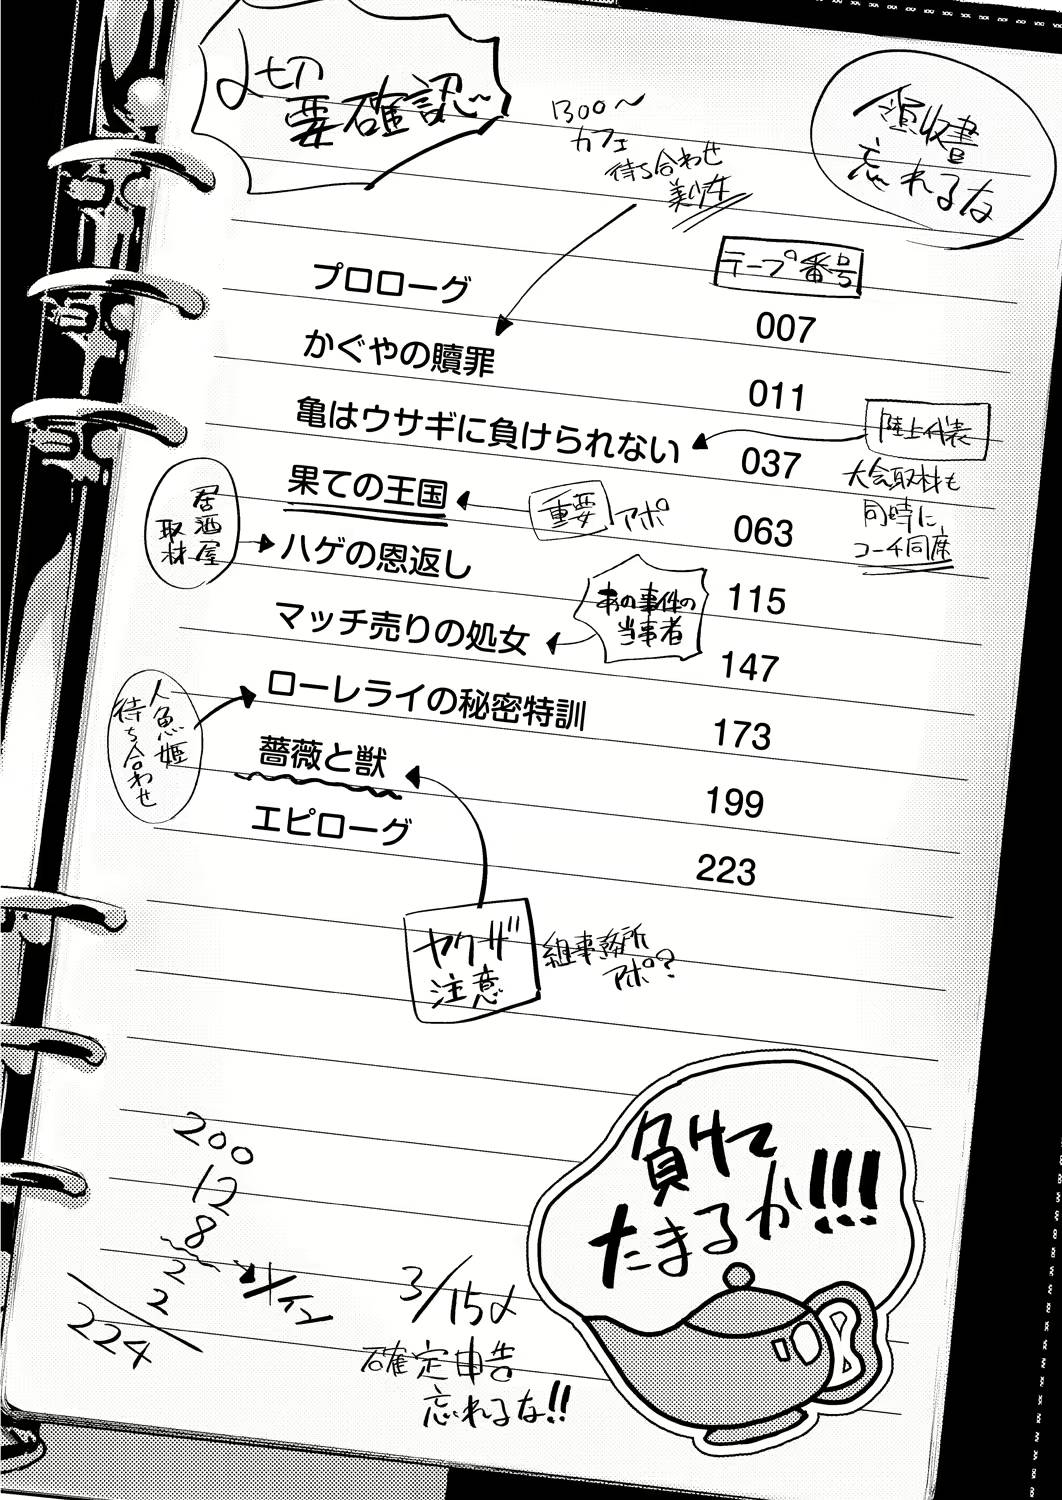 〆切
要確認~
1300~
カフェ
待ち合わせ
美少女
領収書
忘れるな
テープ番号
プロローグ 007
かぐやの贖罪 011
亀はウサギに負けられない 037
陸上代表
大会取材も
同時に、
コーチ同席
果ての王国 063
重要 アポ
ハゲの恩返し 115
居酒屋
取材
マッチ売りの処女 147
あの事件の
当事者
ローレライの秘密特訓 173
人魚姫
待ち合わせ
薔薇と獣 199
エピローグ 223
ヤクザ
注意
組事務所
アポ?
200
12
8
2
2
224
3/15〆
確定申告
忘れるな!!
負けて
たまるか!!!